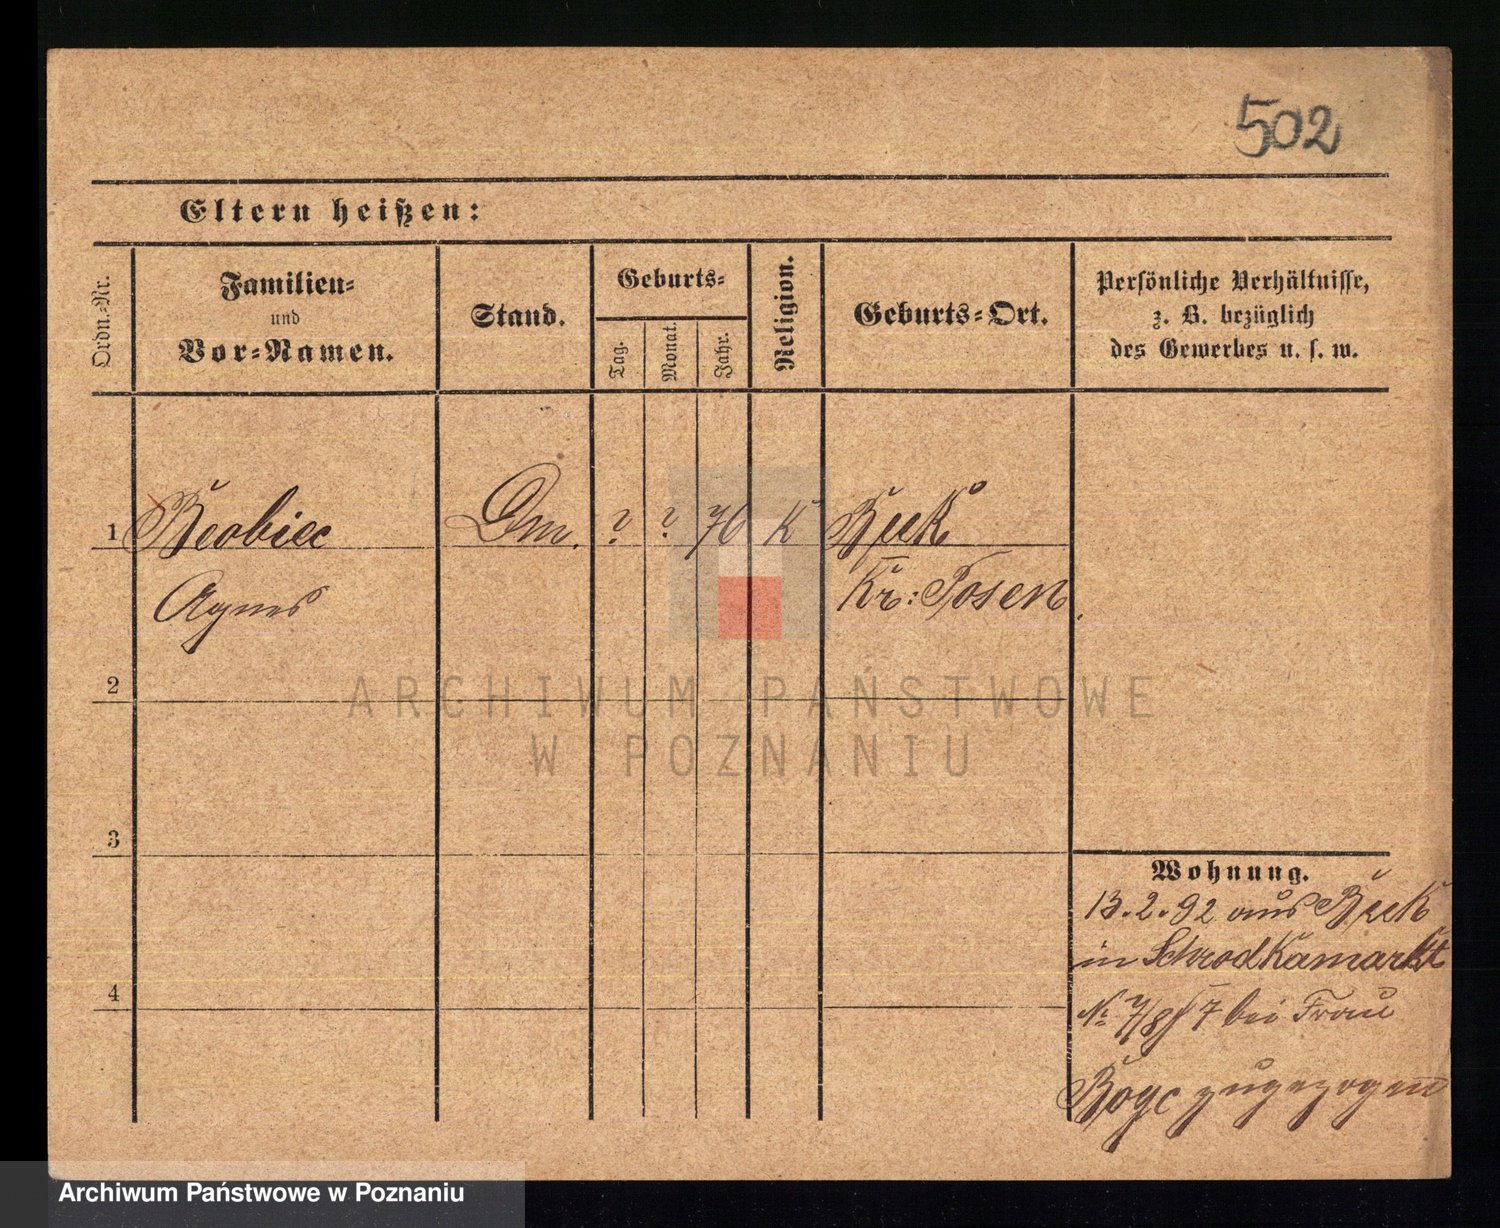 502
Eltern heißen:
Ordn.-Nr.
Familien-
und
Vor-Namen.
Stand.
Geburts-
Tag.
Monat.
Jahr.
Religion.
Geburts-Ort.
Persönliche Verhältnisse,
z. B. bezüglich
des Gewerbes u. s. w.
1
? ? 76 K
Agnes
Kr: Posen
2
3
4
Wohnung.
13.2.92 aus
in Schrodkamarkt
No 7/8 bei Frau
zugezogen
ARCHIWUM PAŃSTWOWE
W POZNANIU
Archiwum Państwowe w Poznaniu